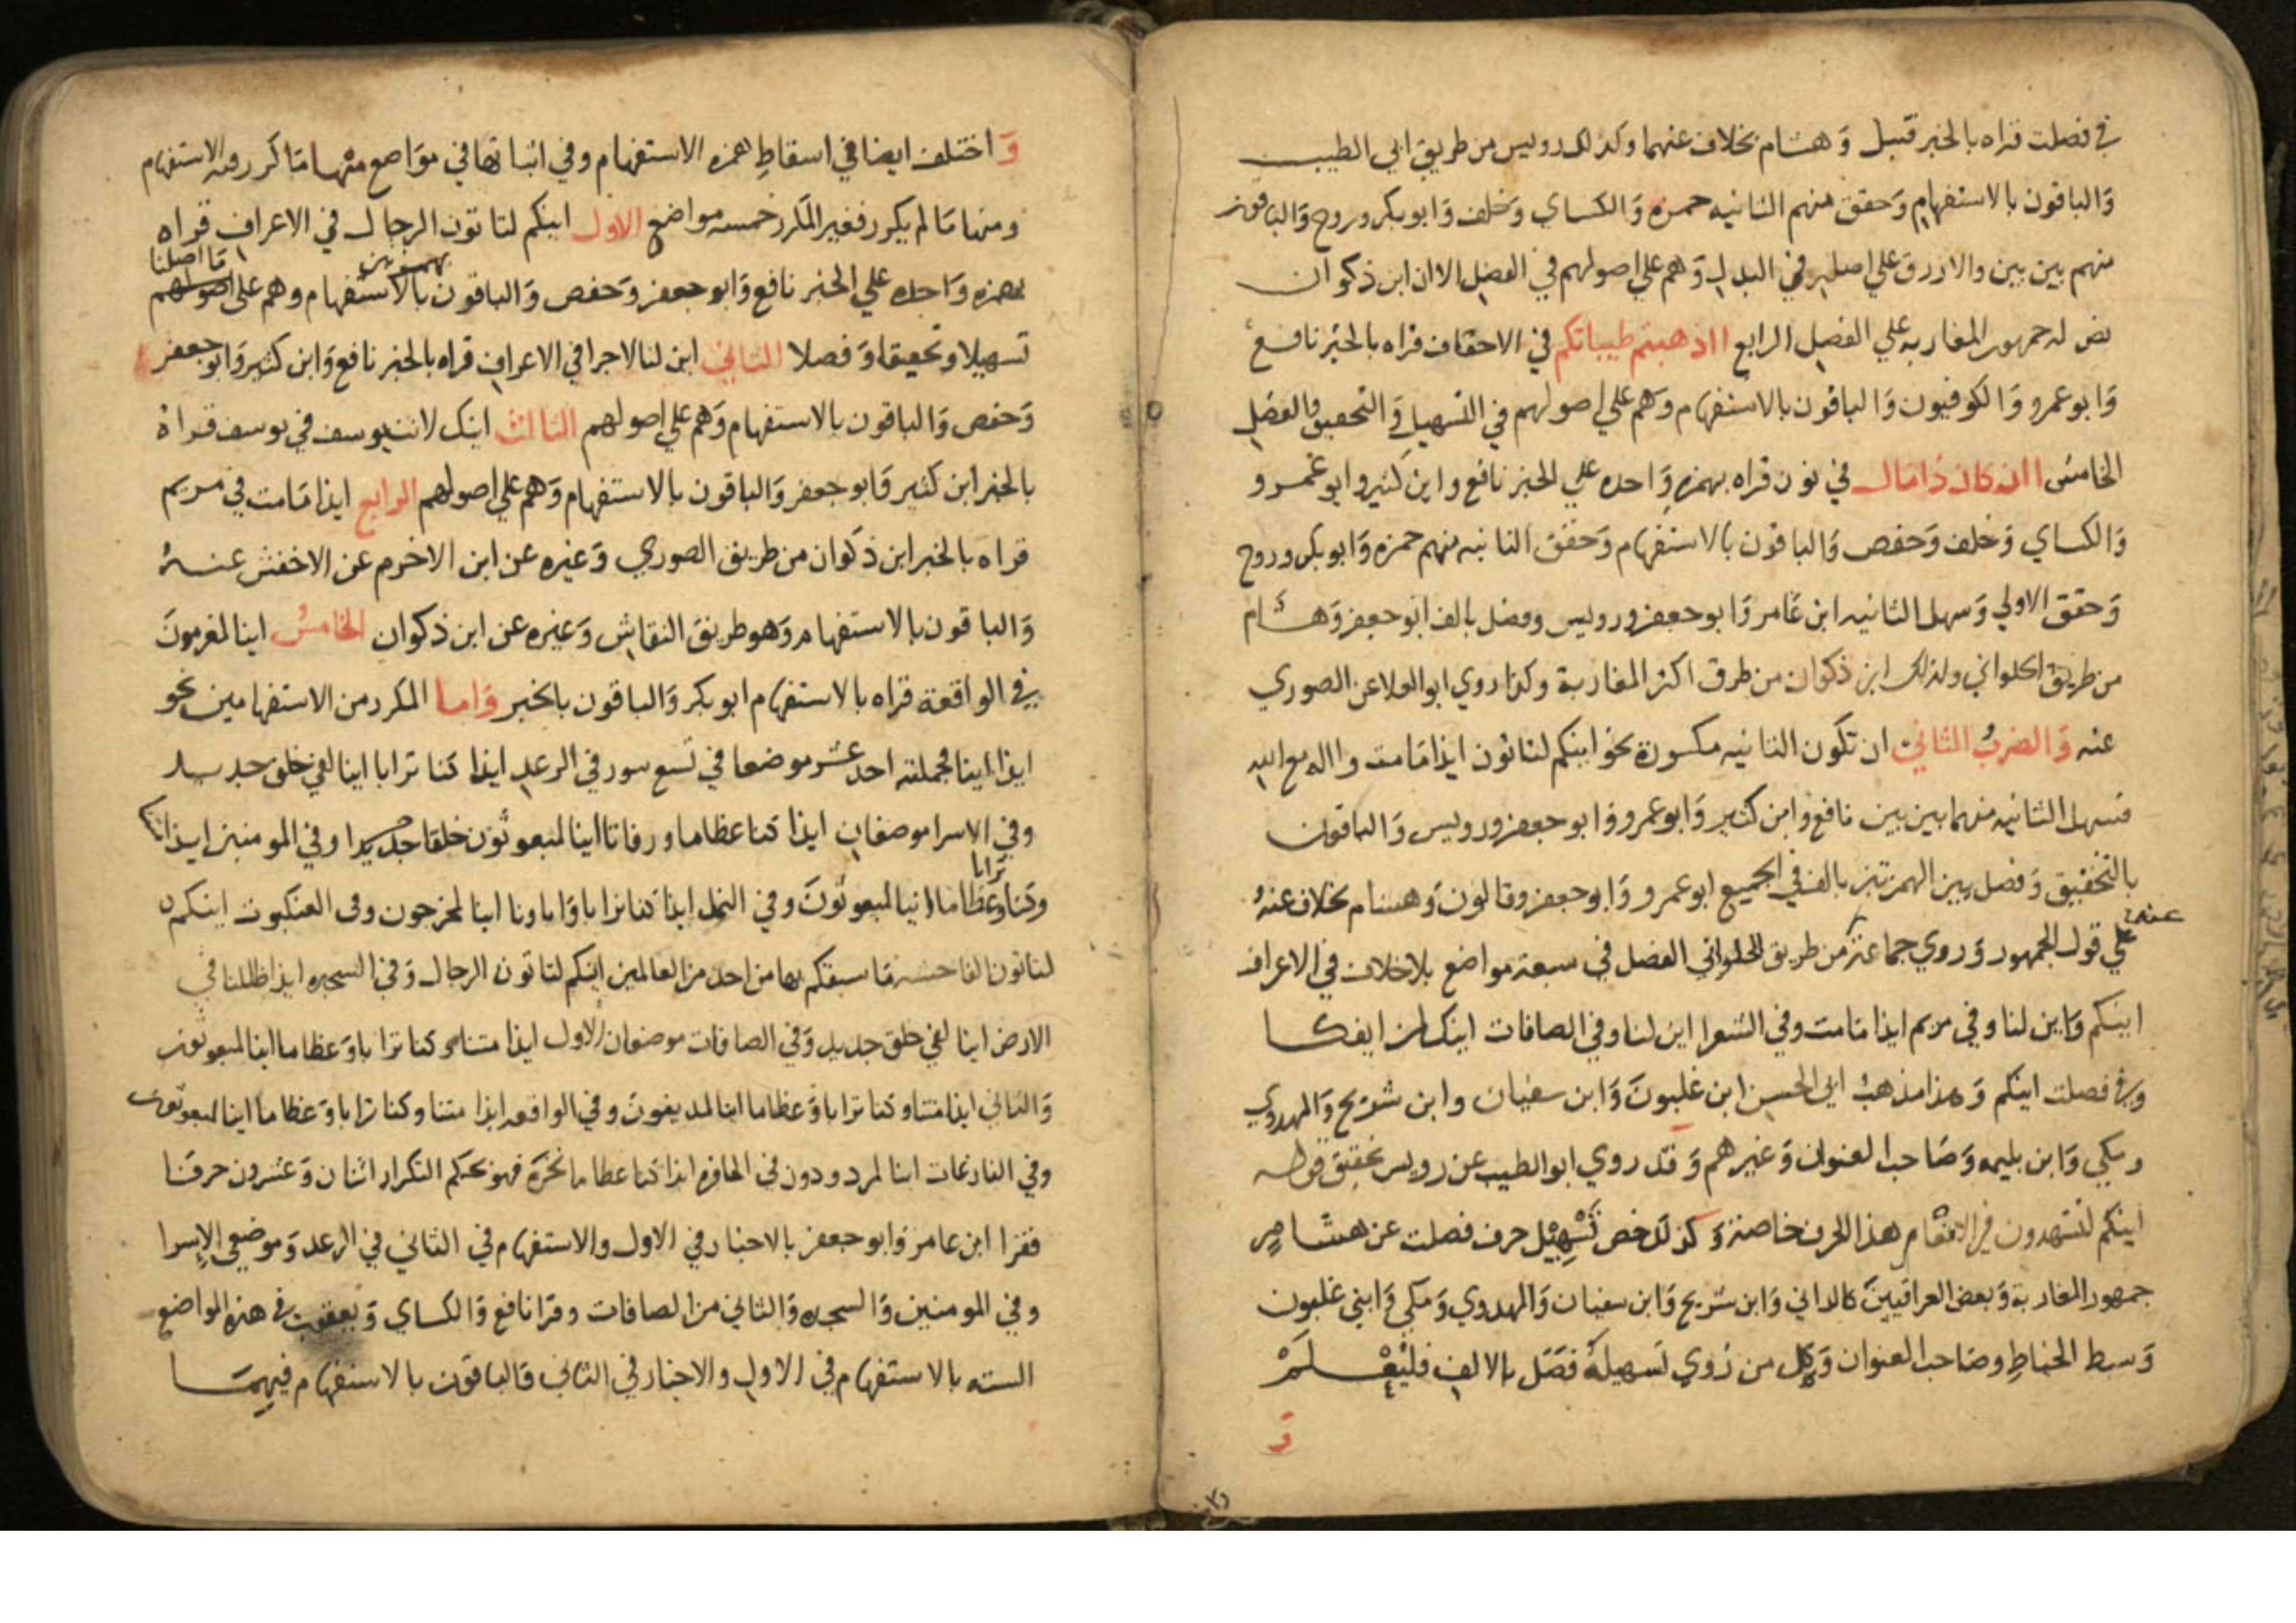 في فصلت قراه بالخبر قنبل وَهشام بخلاف عنهما وكذلك رويس من طريق ابي الطيب
وَالباقون بالاستفهام وَحقق منهم الثانيه حمزه وَالكساي وَخلف وَابو بكر وروح وَالباقون
منهم بين بين والازرق علي اصله في البدل وَهم علي اصولهم في الفصل الا ان ابن ذكوان
نص له جمهور المغاربه علي الفصل الرابع ااذهبتم طيباتكم في الاحقاف قراه بالخبر نافع
وَابو عمرو وَالكوفيون وَالباقون بالاستفهام وهم علي اصولهم في التسهيل وَالتحقيق والفصل
الخامس اان كان ذا مال في نون قراه بهمزه وَاحده علي الخبر نافع وابن كثير وابو عمرو
وَالكساي وَخلف وَحفص وَالباقون بالاستفهام وَحقق الثانيه منهم حمزه وَابو بكر وروح
وَحقق الاولي وَسهل الثانيه ابن عَامر وَابو جعفر ورويس وفصل بالف ابو جعفر وَهشام
من طريق الحلواني ولذلك ابن ذكوان من طرق اكثر المغاربة وكذا روي ابو العلا عن الصوري
عنه وَالضربُ الثاني ان تكون الثانيه مكسورة نحو اينكم لتاتون ايذا مَا مت وااله مع الله
فسهل الثانيه منهما بين بين نافع وَابن كثير وَابو عمرو وَابو جعفر ورويس وَالباقون
بالتحقيق وَفصل بين الهمزتين بالف في الجميع ابو عمرو وَابو جعفر وقالون وَهشام بخلاف عنهُ
علي قول الجمهور وَروي جماعة عنه من طريق الحلواني الفصل في سبعة مواضع بلا خلاف في الاعراف
اينكم وَاين لنا وفي مريم ايذا مَا مت وفي الشعرا اين لنا وفي الصافات اينك لمن ايفكا
وفي فصلت اينكم وَهذا مذهبُ ابي الحسن ابن غلبونَ وَابن سفيان وابن شريح وَالمهدوي
ومكي وَابن بليمه وَصَاحب العنوان وَغيرهم وَقد روي ابو الطيب عن رويس تحقيق قوله
اينكم لتشهدون في الانعَام هذا الحرف خاصة وَكذلك خص تَسْهِيْل حرف فصلت عن هشام
جمهور المغاربة وَبعض العراقيينَ كالداني وَابن شريح وَابن سفيان وَالمهدوي وَمكي وَابني غلبون
وَسبط الخياطِ وصَاحب العنوان وَكل من رَوي تسهيلهُ فصَل بالالف فليُعْلَمْ
وَ
وَاختلف ايضا في اسقاطِ همزه الاستفهام وفي اثباتها في موَاضع منها مَا كرر فيه الاستفهام
ومنها مَا لم يكرر فغير المكرر خمسه مواضع الاول اينكم لتاتون الرجال في الاعراف قراه
بهمزه وَاحده علي الخبر نافع وَابو جعفر وَحفص وَالباقون بهمزتين بالاستفهام وهم علي اصولهم مَا اصلنا
تسهيلا وتحقيقا وَفصلا الثاني اين لنا لاجرا في الاعراف قراه بالخبر نافع وَابن كثير وَابو جعفر
وَحفص وَالباقون بالاستفهام وَهم علي اصولهم الثالث اينك لانت يوسف في يوسف قراه
بالخبر ابن كثير وَابو جعفر وَالباقون بالاستفهام وَهم علي اصولهم الرابع ايذا مَا مت في مريم
قراه بالخبر ابن ذكوان من طريق الصوري وَغيره عن ابن الاخرم عن الاخفش عنهُ
وَالباقون بالاستفهام وَهو طريق النقاش وَغيره عن ابن ذكوان الخامسُ اينا لمغرمونَ
في الواقعة قراه بالاستفهام ابو بكر وَالباقون بالخبر وَاما المكرر من الاستفهامين نحو
ايذا اينا فجملته احد عشر موضعا في تسع سور في الرعد ايذا كنا ترابا اينا لفي خلق جديد
وفي الاسرا موضعان ايذا كنا عظاما ورفاتا اينا لمبعوثون خلقا جديدا وفي المومنين ايذا متنا
وكنا ترَابا وعظاما اينا لمبعوثونَ وفي النمل ايذا كنا ترابا وَاباونا اينا لمخرجون وفي العنكبوت اينكم
لتاتون الفاحشه مَا سبقكم بها من احد من العالمين اينكم لتاتون الرجال وَفي السجده ايذا ظللنا في
الارض اينا لفي خلق جديد وَفي الصافات موضعان الاول ايذا متنا وكنا ترابا وَعظاما اينا لمبعوثون
وَالثاني ايذا متنا وكنا ترابا وَعظاما اينا لمدينونَ وفي الواقعه ايذا متنا وكنا ترابا وَعظاما اينا لمبعوثون
وفي النازعَات اينا لمردودون في الحافره ايذا كنا عظاما نخرَة فهو بحكم التكرار اثنان وَعشرون حرفَا
فقرا ابن عامر وَابو جعفر بالاخبار في الاول والاستفهام في الثاني في الرعد وَموضعي الاِسرا
وفي المومنين وَالسجده وَالثاني من الصافات وقرا نافع وَالكساي وَيعقوب في هذه المواضع
السته بالاستفهام في الاول والاخبار في الثاني وَالباقون بالاستفهام فيهِمَا